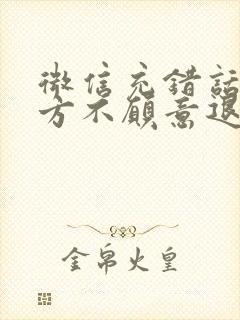 微信充错话
方不愿意退
金帛火皇